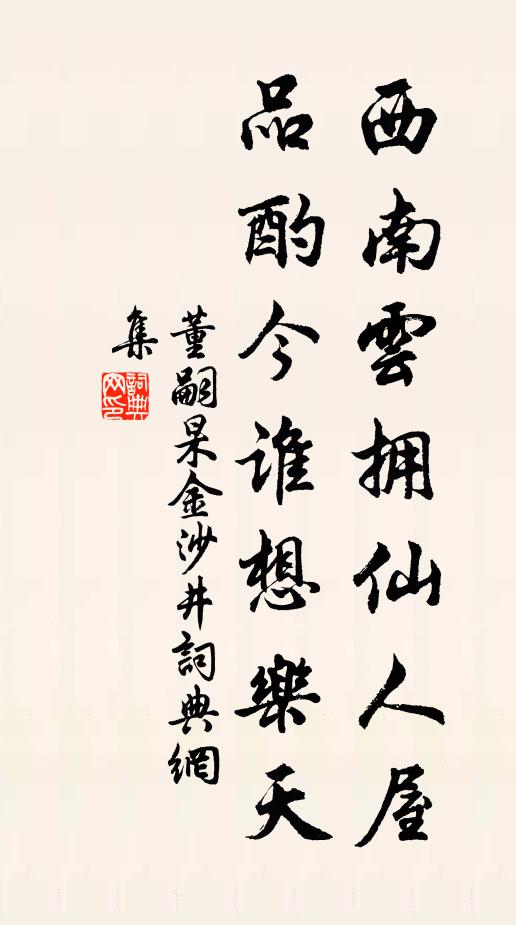 西南雲拥仙人屋
品酌今谁想樂天
董嗣杲金沙井詞典網
集
詞典网印